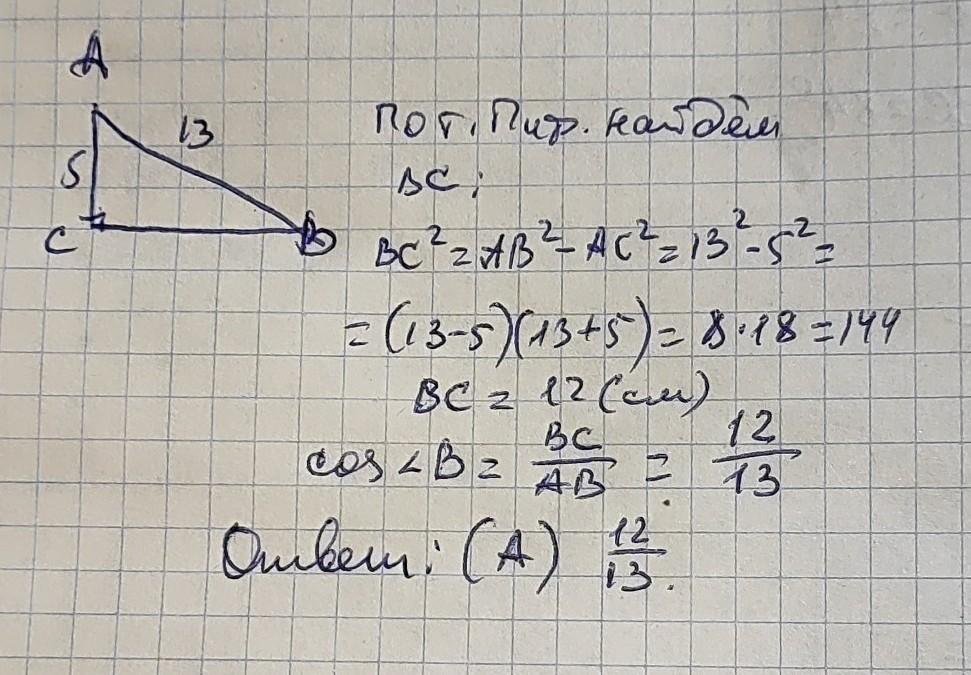 A
13
5
C
B
По т. Пиф. найдём
BC:
BC² = AB² - AC² = 13² - 5² =
= (13-5)(13+5) = 8·18 = 144
BC = 12 (см)
cos ∠B = BC/AB = 12/13
Ответ: (A) 12/13.